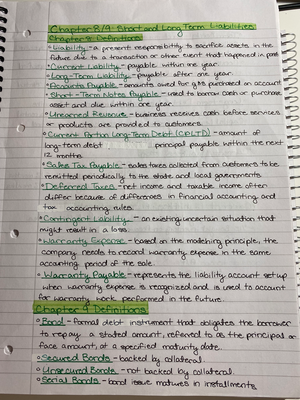 Chapter 8/9 Current and Long-Term Liabilities
Chapter 8 Definitions
Liability - a present responsibility to sacrifice assets in the
future due to a transaction or other event that happened in past
Current Liability - payable within one year.
Long-Term Liability - payable after one year.
Accounts Payable - amounts owed for g&s purchased on account
Short-Term Notes Payable - used to borrow cash or purchase
asset and due within one year.
Unearned Revenue - business receives cash before services
or products are provided to customers.
Current Portion Long-Term Debt (CPLTD) - amount of
long-term debt principal payable within the next
12 months.
Sales Tax Payable - sales taxes collected from customers to be
remitted periodically to the state and local governments.
Deferred Taxes - net income and taxable income often
differ because of differences in financial accounting and
tax accounting rules.
Contingent Liability - an existing uncertain situation that
might result in a loss.
Warranty Expense - based on the matching principle, the
company needs to record warranty expense in the same
accounting period of the sale.
Warranty Payable - represents the liability account set up
when warranty expense is recognized and is used to account
for warranty work performed in the future.
Chapter 9 Definitions
Bond - formal debt instrument that obligates the borrower
to repay a stated amount, referred to as the principal or
face amount, at a specified maturity date.
Secured Bonds - backed by collateral.
Unsecured Bonds - not backed by collateral.
Serial Bonds - bond issue matures in installments